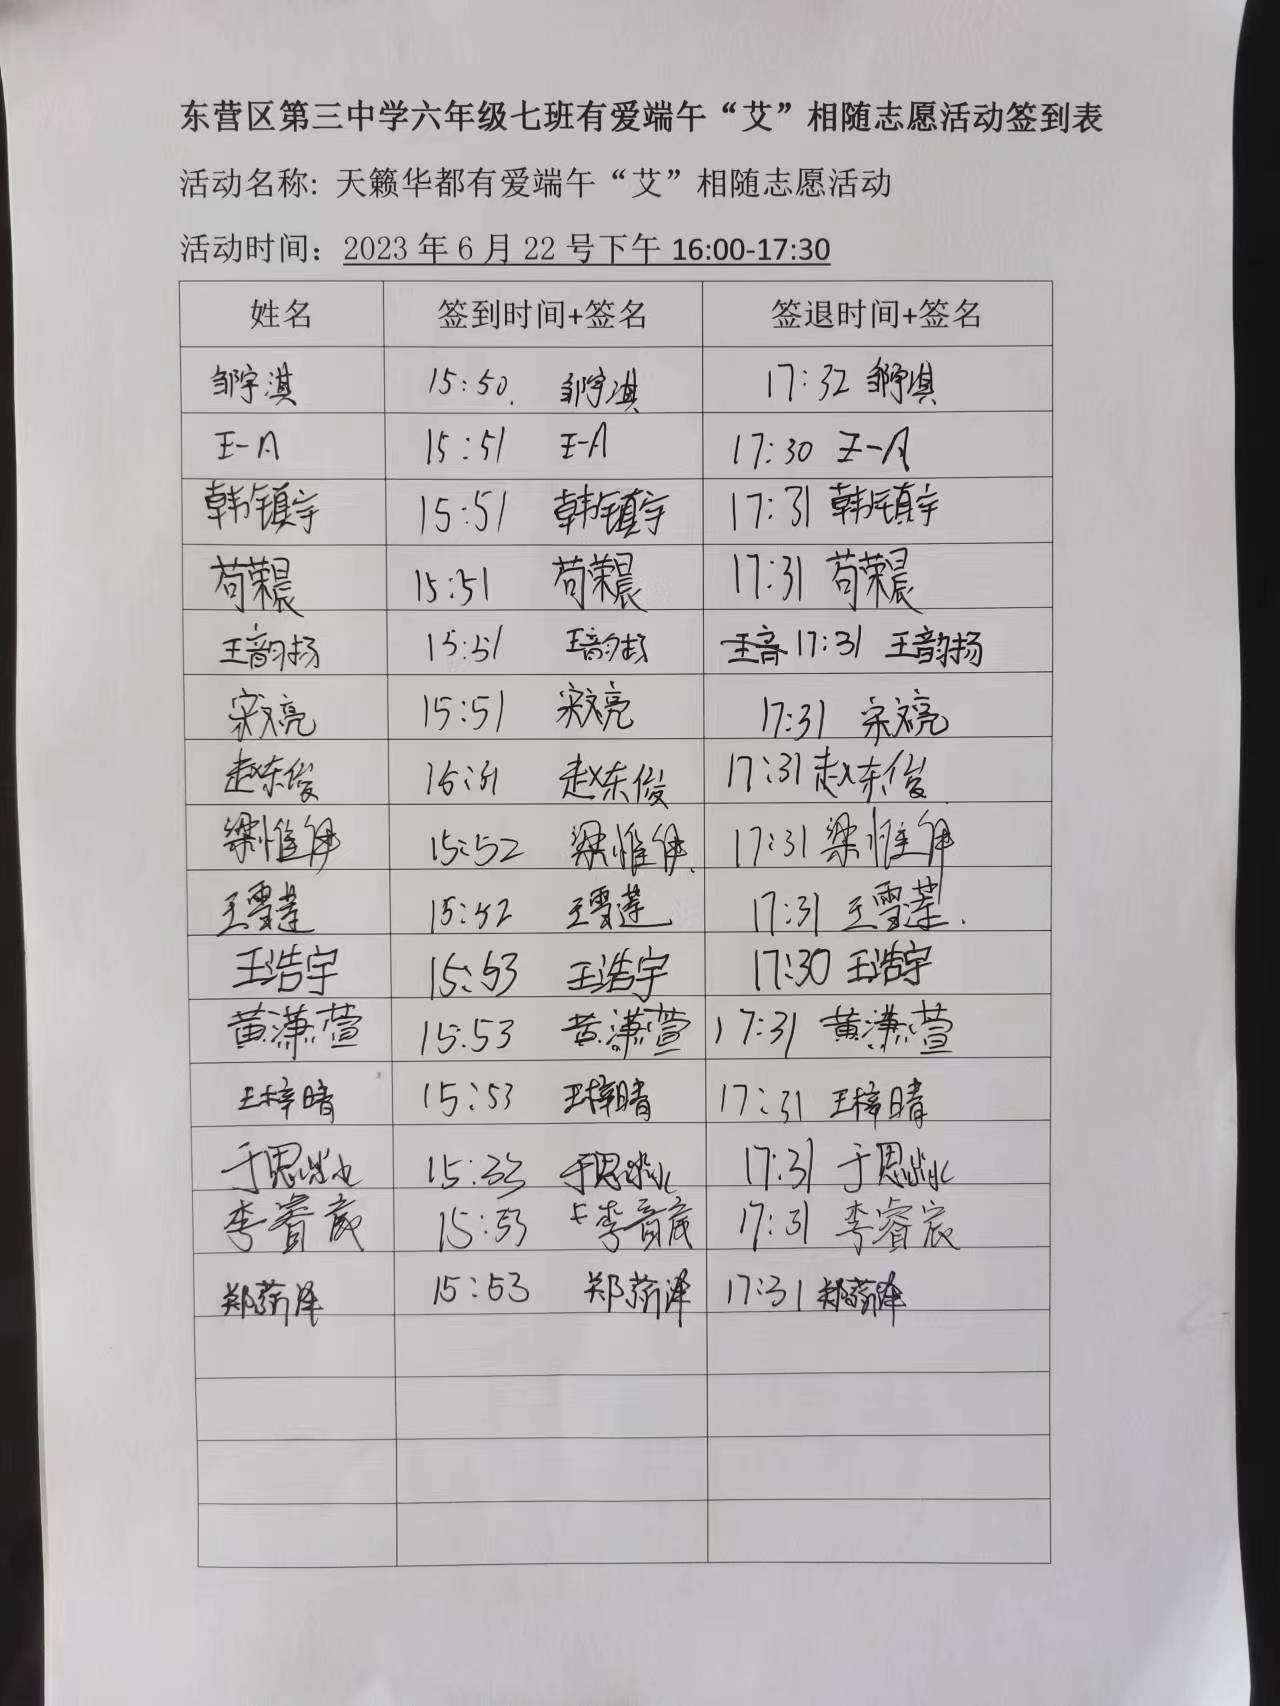 东营区第三中学六年级七班有爱端午“艾”相随志愿活动签到表
活动名称: 天籁华都有爱端午“艾”相随志愿活动
活动时间：2023 年 6 月 22 号下午 16:00-17:30
姓名 签到时间+签名 签退时间+签名
邹宇淇 15:50. 邹宇淇 17:32 邹宇淇
王一 15:51 王一 17:30 王一
韩镇宇 15:51 韩镇宇 17:31 韩镇宇
苟荣晨 15:51 苟荣晨 17:31 苟荣晨
王韵扬 15:51 王韵扬 17:31 王韵扬
宋文亮 15:51 宋文亮 17:31 宋文亮
赵东俊 赵东俊 17:31 赵东俊
梁惟伊 15:52 梁惟伊 17:31 梁惟伊
王雪莲 15:52 王雪莲 17:31 王雪莲.
王浩宇 15:53 王浩宇 17:30 王浩宇
黄潇萱 15:53 黄潇萱 17:31 黄潇萱
王梓晴 15:53 王梓晴 17:31 王梓晴
于思淼 于思淼 17:31 于思淼
李睿宸 15:53 李睿宸 17:31 李睿宸
郑菏泽 15:53 郑菏泽 17:31 郑菏泽